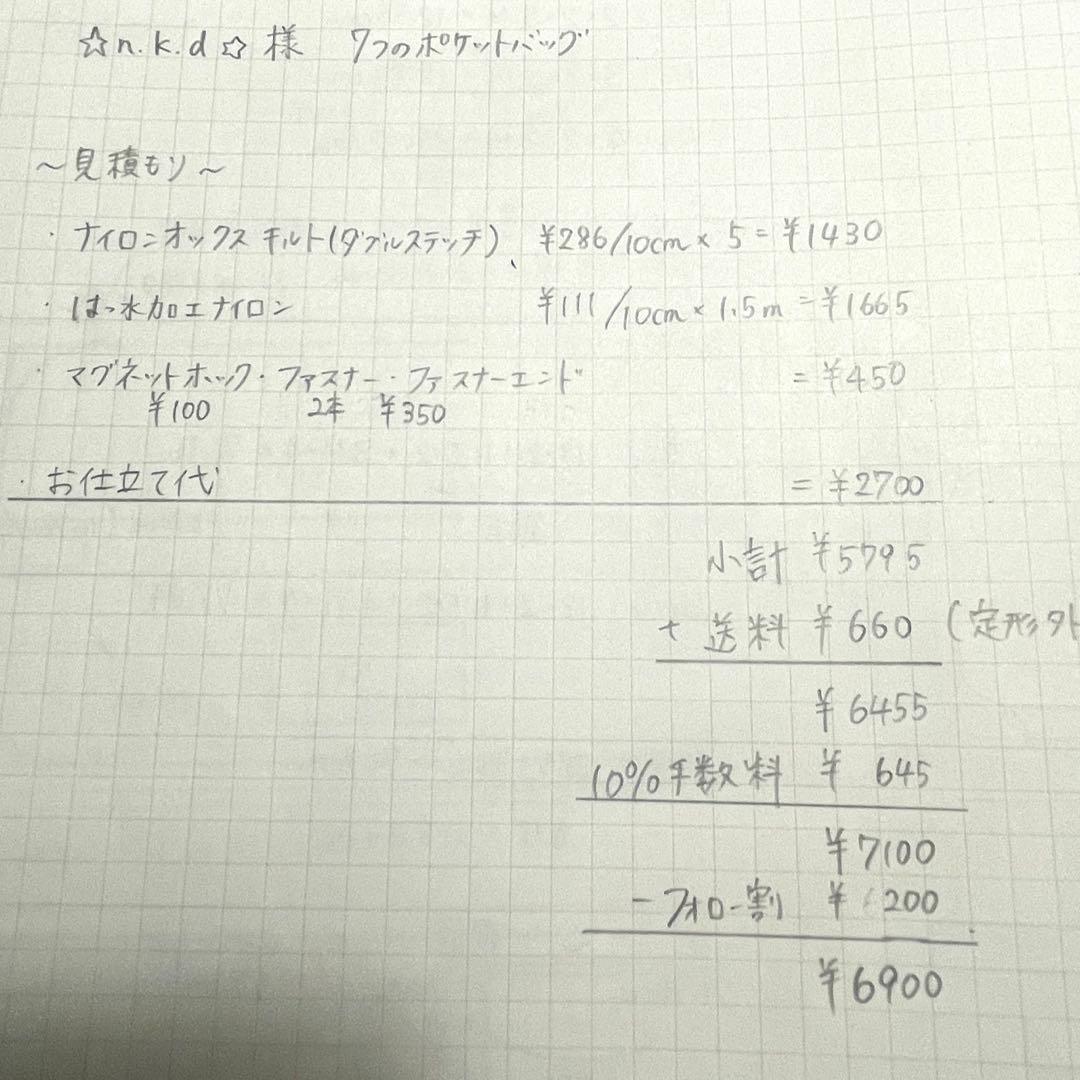 ☆n.k.d☆様 7つのポケットバッグ
～見積もり～
・ナイロンオックスキルト(ダブルステッチ)、 ¥286/10cm × 5 = ¥1430
・はっ水加工ナイロン ¥111/10cm × 1.5m = ¥1665
・マグネットホック・ファスナー・ファスナーエンド = ¥450
¥100 2本 ¥350
・お仕立て代 = ¥2700
小計 ¥5795
+ 送料 ¥660 (定形外
¥6455
10%手数料 ¥ 645
¥7100
－フォロー割 ¥ 200
¥6900